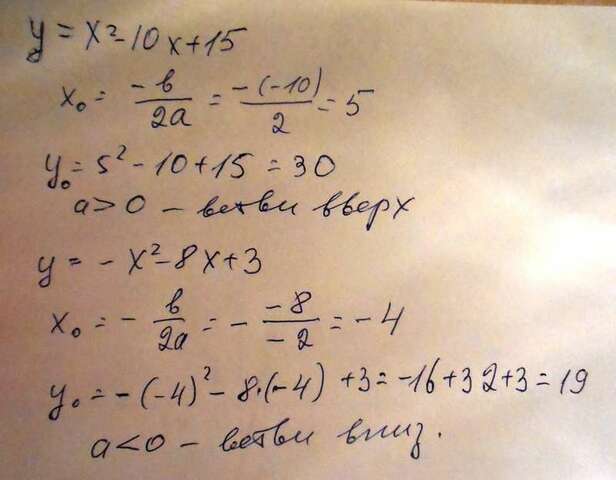 y = x² - 10x + 15
x₀ = -b/2a = -(-10)/2 = 5
y₀ = 5² - 10 + 15 = 30
a > 0 - ветви вверх
y = - x² - 8x + 3
x₀ = - b/2a = - -8/-2 = -4
y₀ = -(-4)² - 8·(-4) + 3 = -16 + 32 + 3 = 19
a < 0 - ветви вниз.